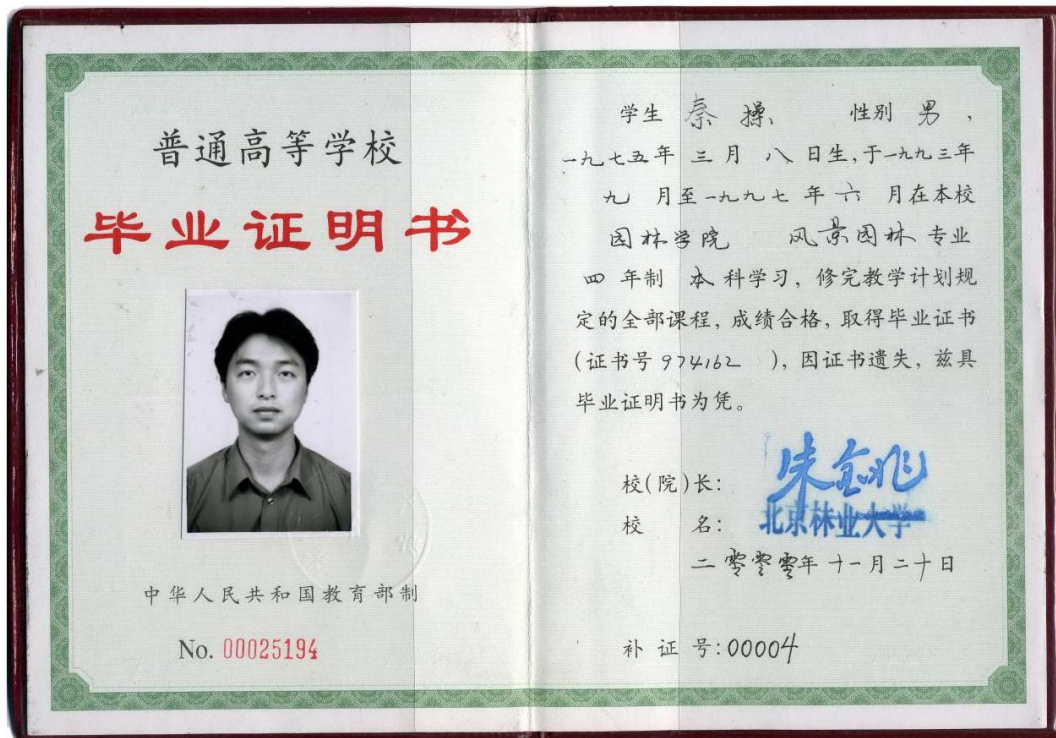 普通高等学校
毕业证明书
中华人民共和国教育部制
No. 00025194
学生 秦操 性别 男,
一九七五年 三月 八日生,于一九九三年
九 月至一九九七年六 月在本校
园林学院 风景园林专业
四 年制 本科学习,修完教学计划规
定的全部课程,成绩合格,取得毕业证书
(证书号974162 ),因证书遗失,兹具
毕业证明书为凭。
校(院)长: 朱金兆
校 名: 北京林业大学
二零零零年十一月二十日
补证号:00004